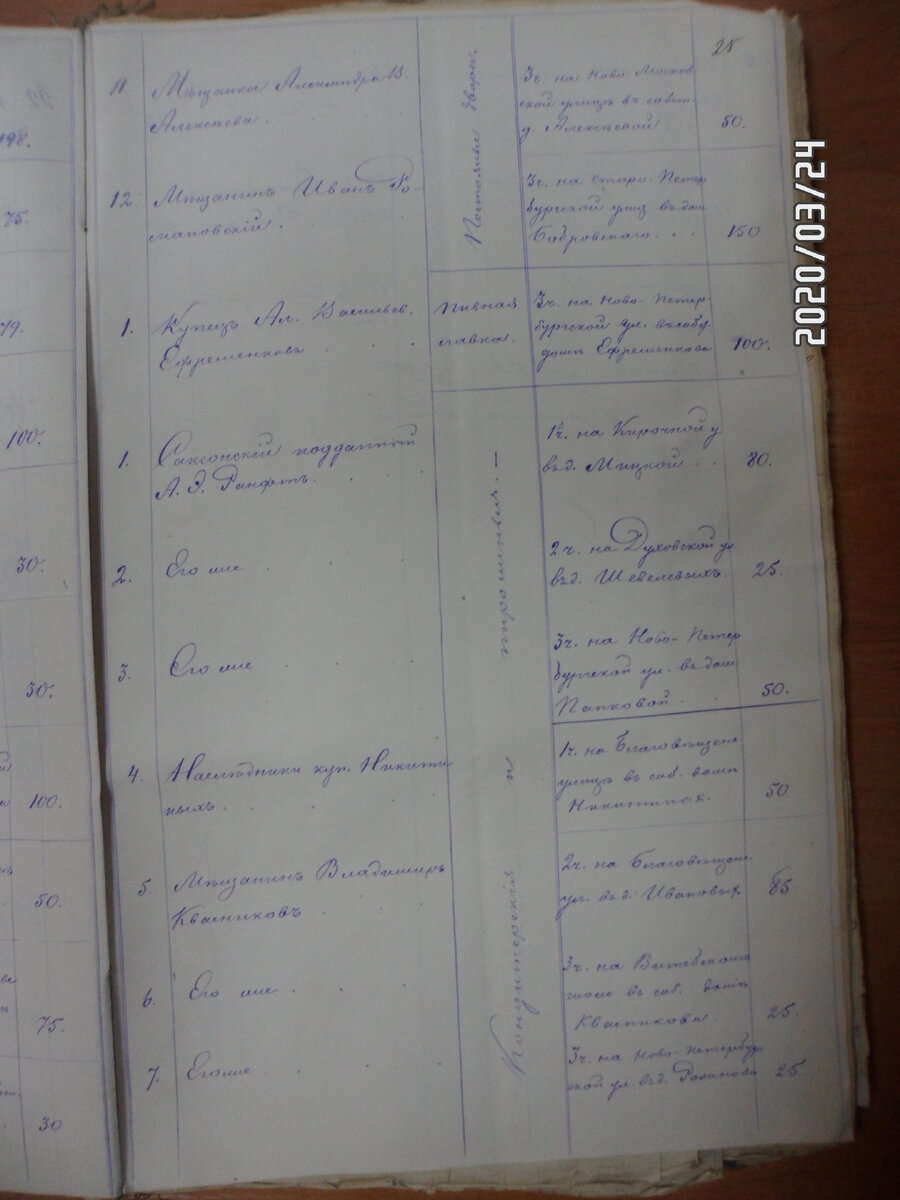 25
11. Мѣщанка Александра В.
Алексѣева.
Постоялые дворы.
3ч. на Ново-Москов
ской улицѣ въ собств
д. Алексѣевой
50.
12. Мѣщанинъ Иванъ Ро-
мановскій.
3ч. на старо-Петер
бургской улиц. въ дом
Бобровскаго.
150
1. Купецъ Ал. Васильев.
Ефременковъ
Пивная
лавка.
3ч. на Ново-Петер
бургской ул. въ соб.
домѣ Ефременкова
100.
1. Саксонскій подданный
А. Э. Ранфтъ.
Кондитерскія и пирошныя. —
1ч. на Кирочной у
въ д. Мицкой
80.
2. Его же
2ч. на Духовской ул
въ д. Шевелевыхъ.
25.
3. Его же
3ч. на Ново-Петер
бургской ул. въ дом.
Папковой
50.
4. Наслѣдники куп. Никити
ныхъ.
1ч. на Благовѣщенс
улицѣ въ соб. домѣ
Никитиных.
50
5. Мѣщанинъ Владимиръ
Квасниковъ
2ч. на Благовѣщенс
ул. въ д. Ивановых
85.
6. Его же
3ч. на Витебскомъ
шосе въ соб. домѣ
Квасникова.
25.
7. Его же
3ч. на Ново-Петербур
ской ул въ д.
25.
198.
75.
79.
100.
30.
30.
100.
50.
75.
30
2020/03/24